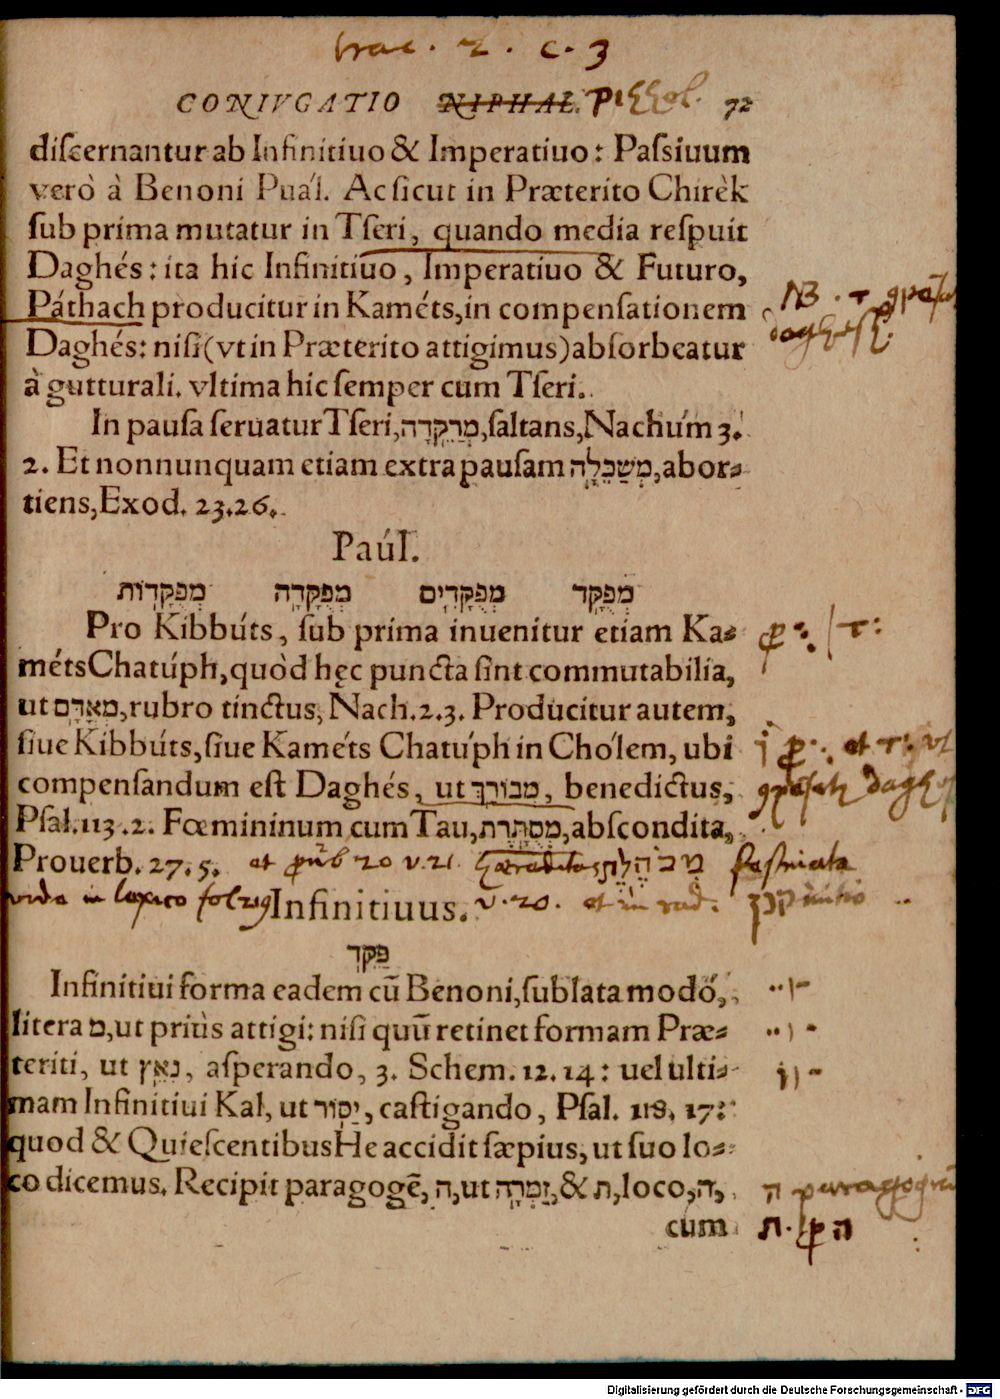 trac. 2. c. 3
CONIVGATIO NIPHAL. 72
discernantur ab Infinitiuo & Imperatiuo: Passiuum
verò à Benoni Puál. Ac sicut in Præterito Chirèk
sub prima mutatur in Tseri, quando media respuit
Daghés: ita hic Infinitiuo, Imperatiuo & Futuro,
Páthach producitur in Kaméts, in compensationem
Daghés: nisi (vt in Præterito attigimus) absorbeatur
à gutturali. vltima hic semper cum Tseri.
NB.
In pausa seruatur Tseri, מְרַקֵּדָה, saltans, Nachúm 3.
2. Et nonnunquam etiam extra pausam מְשַׁכֵּלָה, abor-
tiens, Exod. 23.26.
Paúl.
מְפֻקָּד מְפֻקָּדִים מְפֻקָּדָה מְפֻקָּדוֹת
Pro Kibbúts, sub prima inuenitur etiam Ka-
méts Chatúph, quòd hęc puncta sint commutabilia,
ut מְאָדָּם, rubro tinctus, Nach. 2.3. Producitur autem,
siue Kibbúts, siue Kaméts Chatúph in Chólem, ubi
compensandum est Daghés, ut מְבוֹרָךְ, benedictus,
Psal. 113.2. Fœmininum cum Tau, מְסֻתֶּרֶת, abscondita,
Prouerb. 27.5. et 20 v. 21 מְבֹהֶלֶת
vide in lexico
Infinitiuus. v. 20.
פַּקֵּד
Infinitiui forma eadem cū Benoni, sublata modò,
litera מ, ut priùs attigi: nisi quū retinet formam Præ-
teriti, ut נִאֵץ, asperando, 3. Schem. 12.14: uel ulti-
mam Infinitiui Kal, ut יַסּוֹר, castigando, Psal. 118. 17:
quod & Quiescentibus He accidit sæpius, ut suo lo-
co dicemus. Recipit paragogē, ה, ut זַמְּרָה, & ת, loco, ה,
ה
cum
ה ת
Digitalisierung gefördert durch die Deutsche Forschungsgemeinschaft - DFG